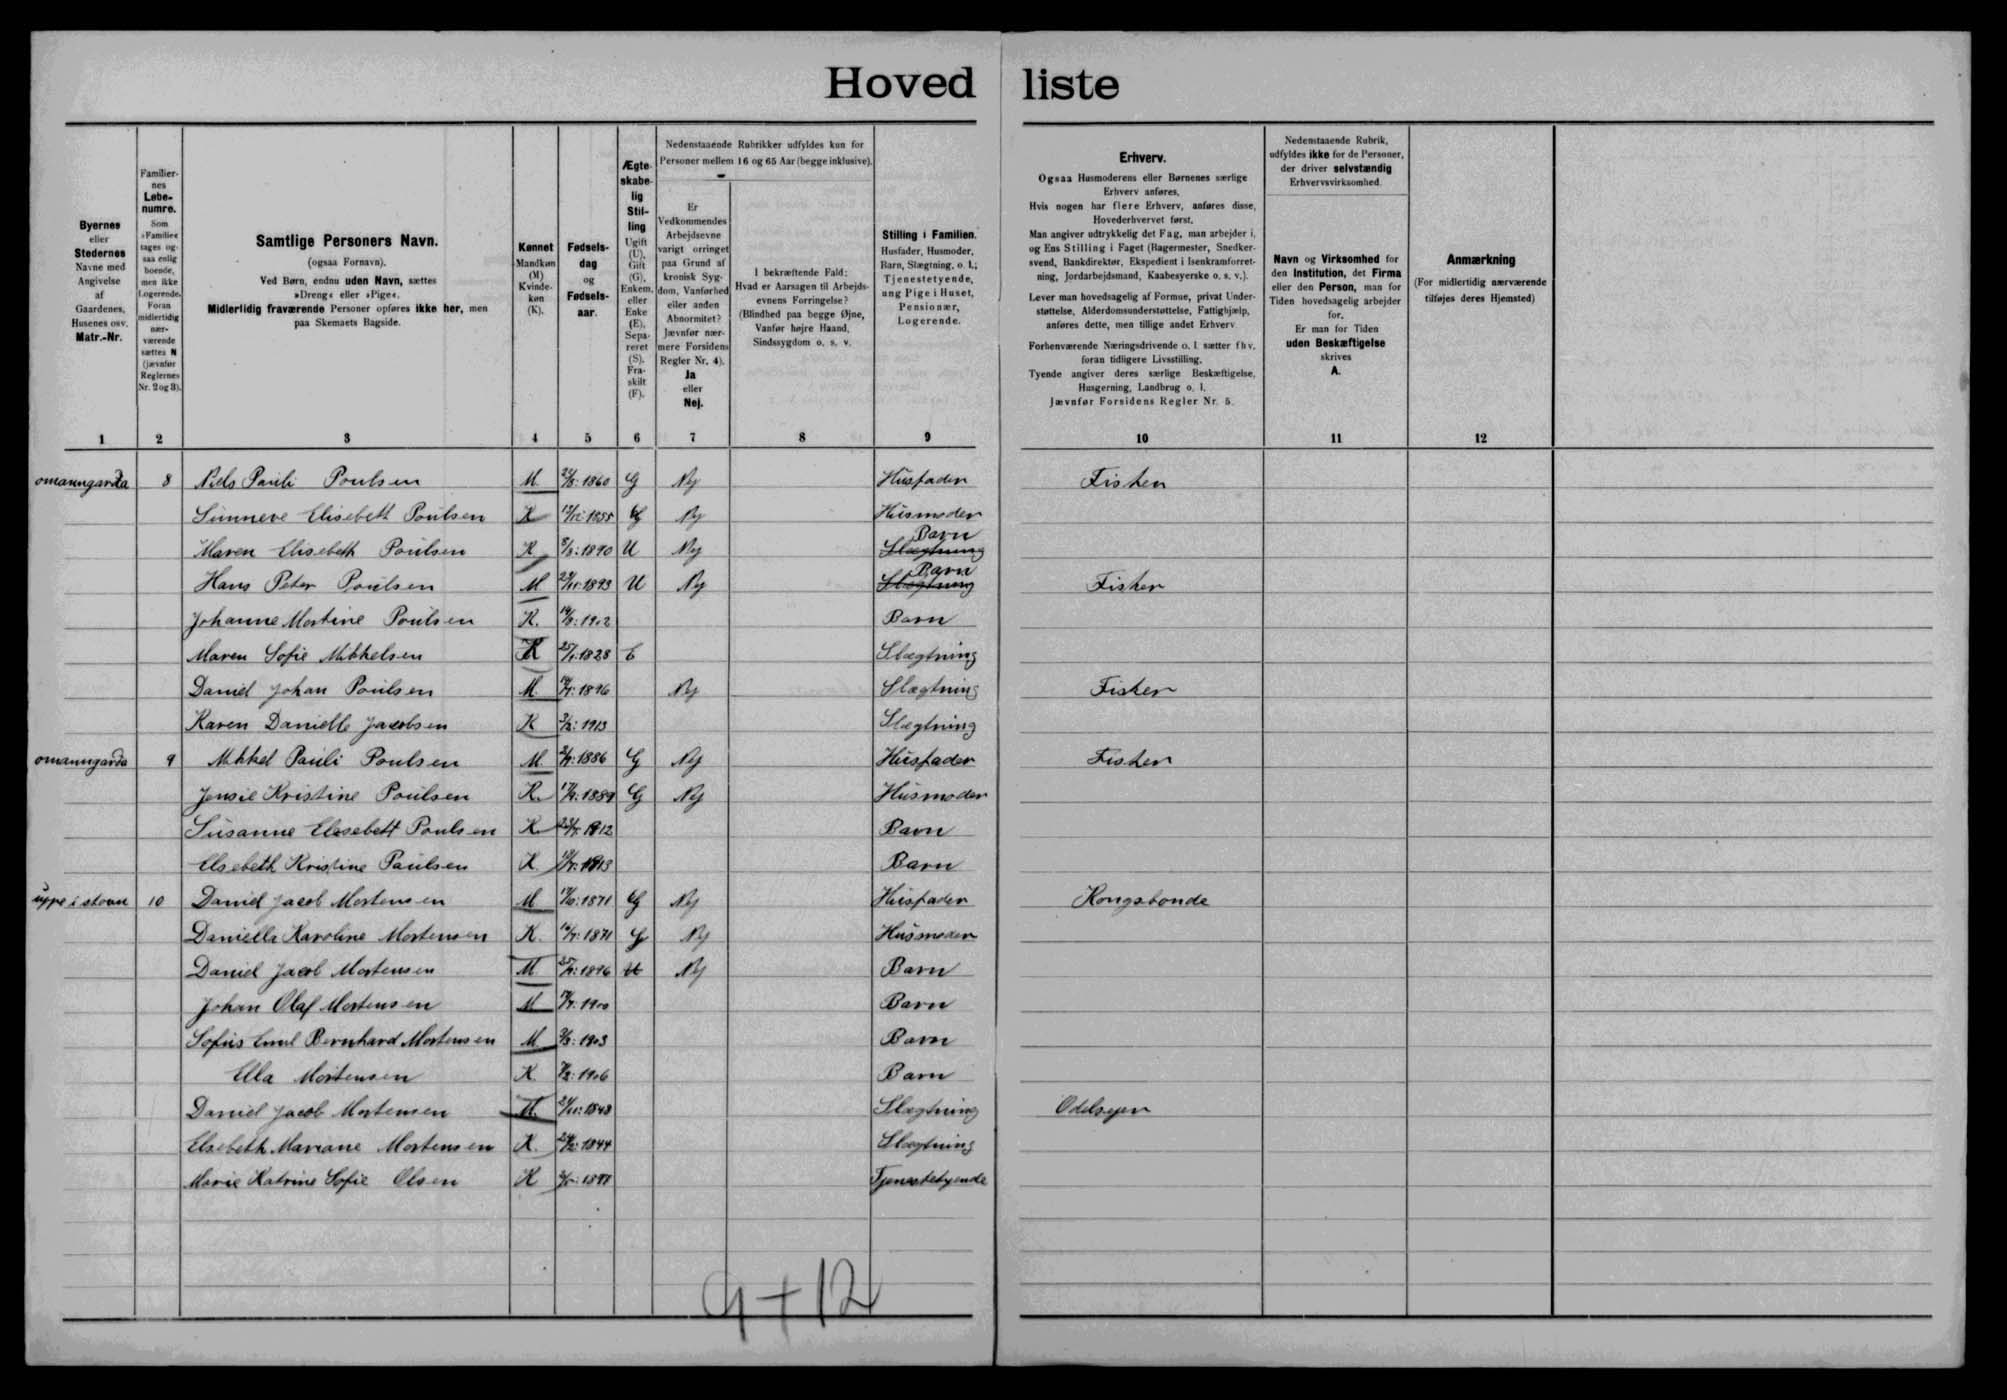 Hoved liste
Byernes
eller
Stedernes
Navne med
Angivelse
af
Gaardenes,
Husenes osv.
Matr.-Nr.
Familier-
nes
Løbe-
numre.
Som
»Familie«
tages og-
saa enlig
boende,
men ikke
Logerende.
Foran
midlertidig
nær-
værende
sættes N
(jævnfør
Reglernes
Nr. 2 og 3).
Samtlige Personers Navn.
(ogsaa Fornavn).
Ved Børn, endnu uden Navn, sættes
»Dreng« eller »Pige«.
Midlertidig fraværende Personer opføres ikke her, men
paa Skemaets Bagside.
Kønnet
Mandkøn
(M)
Kvinde-
køn
(K).
Fødsels-
dag
og
Fødsels-
aar.
Ægte-
skabe-
lig
Stil-
ling
Ugift
(U),
Gift
(G),
Enkem.
eller
Enke
(E),
Sepa-
reret
(S),
Fra-
skilt
(F).
Nedenstaaende Rubrikker udfyldes kun for
Personer mellem 16 og 65 Aar (begge inklusive).
Er
Vedkommendes
Arbejdsevne
varigt forringet
paa Grund af
kronisk Syg-
dom, Vanførhed
eller anden
Abnormitet?
Jævnfør nær-
mere Forsidens
Regler Nr. 4).
Ja
eller
Nej.
I bekræftende Fald:
Hvad er Aarsagen til Arbejds-
evnens Forringelse?
(Blindhed paa begge Øjne,
Vanfør højre Haand,
Sindssygdom o. s. v.
Stilling i Familien.
Husfader, Husmoder,
Barn, Slægtning, o. l.;
Tjenestetyende,
ung Pige i Huset,
Pensionær,
Logerende.
Erhverv.
Ogsaa Husmoderens eller Børnenes særlige
Erhverv anføres.
Hvis nogen har flere Erhverv, anføres disse,
Hovederhvervet først.
Man angiver udtrykkelig det Fag, man arbejder i,
og Ens Stilling i Faget (Bagermester, Snedker-
svend, Bankdirektør, Ekspedient i Isenkramforret-
ning, Jordarbejdsmand, Kaabesyerske o. s. v.).
Lever man hovedsagelig af Formue, privat Under-
støttelse, Alderdomsunderstøttelse, Fattighjælp,
anføres dette, men tillige andet Erhverv
Forhenværende Næringsdrivende o. l. sætter fhv.
foran tidligere Livsstilling.
Tyende angiver deres særlige Beskæftigelse,
Husgerning, Landbrug o. l.
Jævnfør Forsidens Regler Nr. 5.
Nedenstaaende Rubrik,
udfyldes ikke for de Personer,
der driver selvstændig
Erhvervsvirksomhed.
Navn og Virksomhed for
den Institution, det Firma
eller den Person, man for
Tiden hovedsagelig arbejder
for.
Er man for Tiden
uden Beskæftigelse
skrives
A.
Anmærkning
(For midlertidig nærværende
tilføjes deres Hjemsted)
1 2 3 4 5 6 7 8 9 10 11 12
omanngarda 8 Niels Pauli Poulsen M 1860 G Nej Husfader Fisker
Sunneve Elisebeth Poulsen K G Nej Husmoder
Maren Elisebeth Poulsen K 1890 U Nej Slægtning Barn
Hans Peter Poulsen M 1893 U Nej Slægtning Barn Fisker
Johanne Mortine Poulsen K. 1902 Barn
Maren Sofie Mikkelsen K 1828 E Slægtning
Daniel Johan Poulsen M. 1896 Nej Slægtning Fisker
Karen Danielle Jacobsen K 1913 Slægtning
omanngarda 9 Mikkel Pauli Poulsen M 1886 G Nej Husfader Fisker
Jensie Kristine Poulsen K. 1889 G Nej Husmoder
Susanne Elsebett Poulsen K 1912 Barn
Elsebeth Kristine Paulsen K 1913 Barn
uppe i stovu 10 Daniel Jacob Mortensen M 1871 G Nej Husfader Kongsbonde
Daniella Karoline Mortensen K. 1871 G Nej Husmoder
Daniel Jacob Mortensen M 1896 U Nej Barn
Johan Olaf Mortensen M 1900 Barn
Sofus Emil Bernhard Mortensen M 1903 Barn
Ella Mortensen K. 1906 Barn
Daniel Jacob Mortensen M. 1843 Slægtning Odelsejer
Elsebeth Mariane Mortensen K. 1844 Slægtning
Marie Katrine Sofie Olsen K Tjenestetyende
9+12